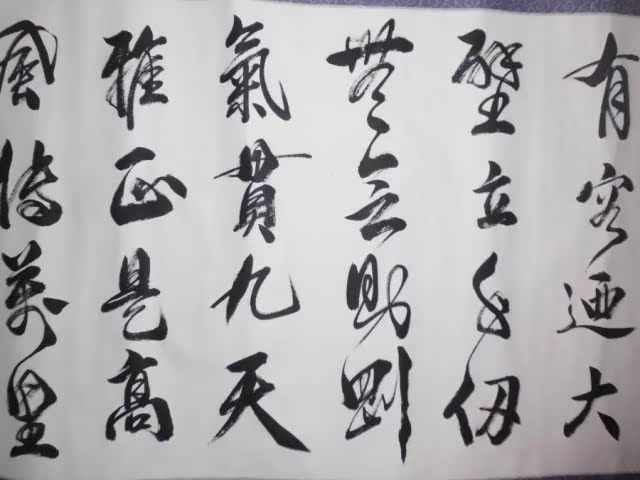 有容迺大
壁立千仞
無欲則剛
氣貫九天
雅正是高
風清萬里